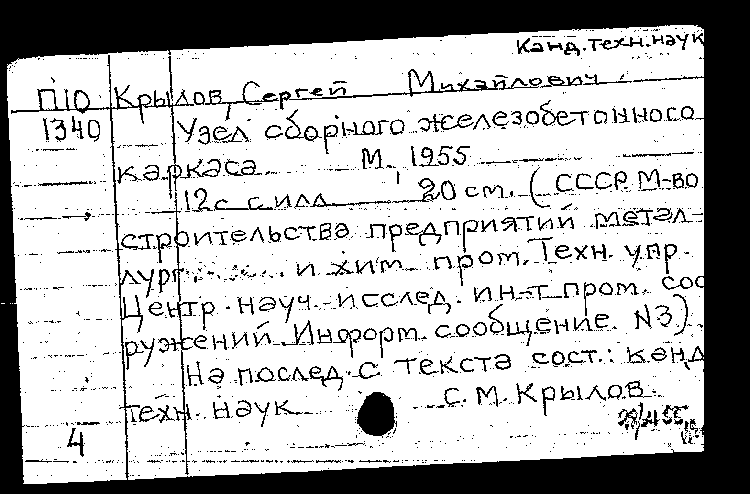 Канд. техн. наук
П10 Крылов, Сергей Михайлович
1340 Узел сборного железобетонного
каркаса М. 1955
12с с илл 20 см. (СССР М-во
строительства предприятий метал-
лург. и хим. пром. Техн. упр.
Центр. науч.-исслед. ин-т пром. соо
ружений. Информ. сообщение. N3).
На послед. с текста сост.: канд
техн. наук С. М. Крылов.
4